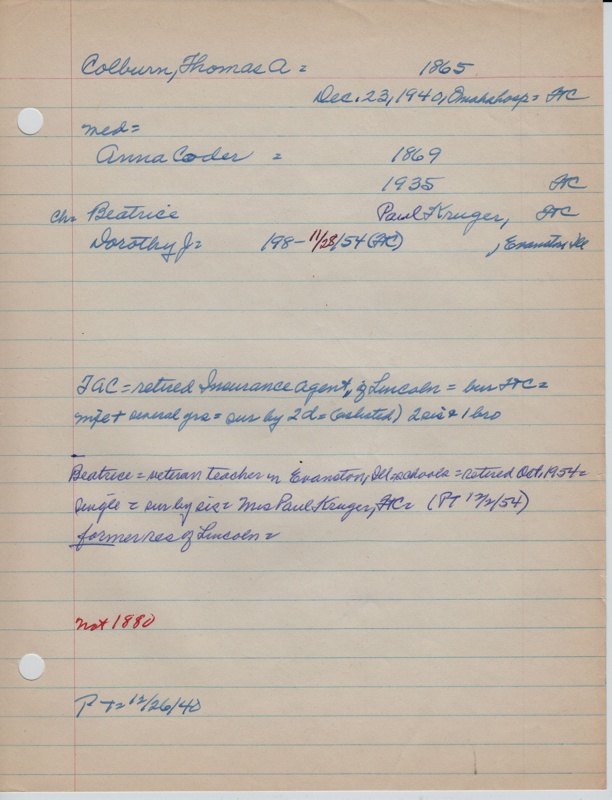 Colburn, Thomas A = 1865
Dec. 23, 1940, Omahahosp = FtC
med =
Anna Coder = 1869
1935 FtC
ch = Beatrice Paul Kruger, FtC
Dorothy J = 198 - 11/28/54 (FtC) , Evanston Ill
TAC = retired Insurance agent, of Lincoln = bur FtC =
wife + several yrs = sur by 2d = (as listed) 2 sis + 1 bro
Beatrice = veteran teacher in Evanston, Ill schools = retired Oct. 1954 =
single = sur by sis = Mrs Paul Kruger, FtC = (PT 12/2/54)
former res of Lincoln =
not 1880
PT = 12/26/40